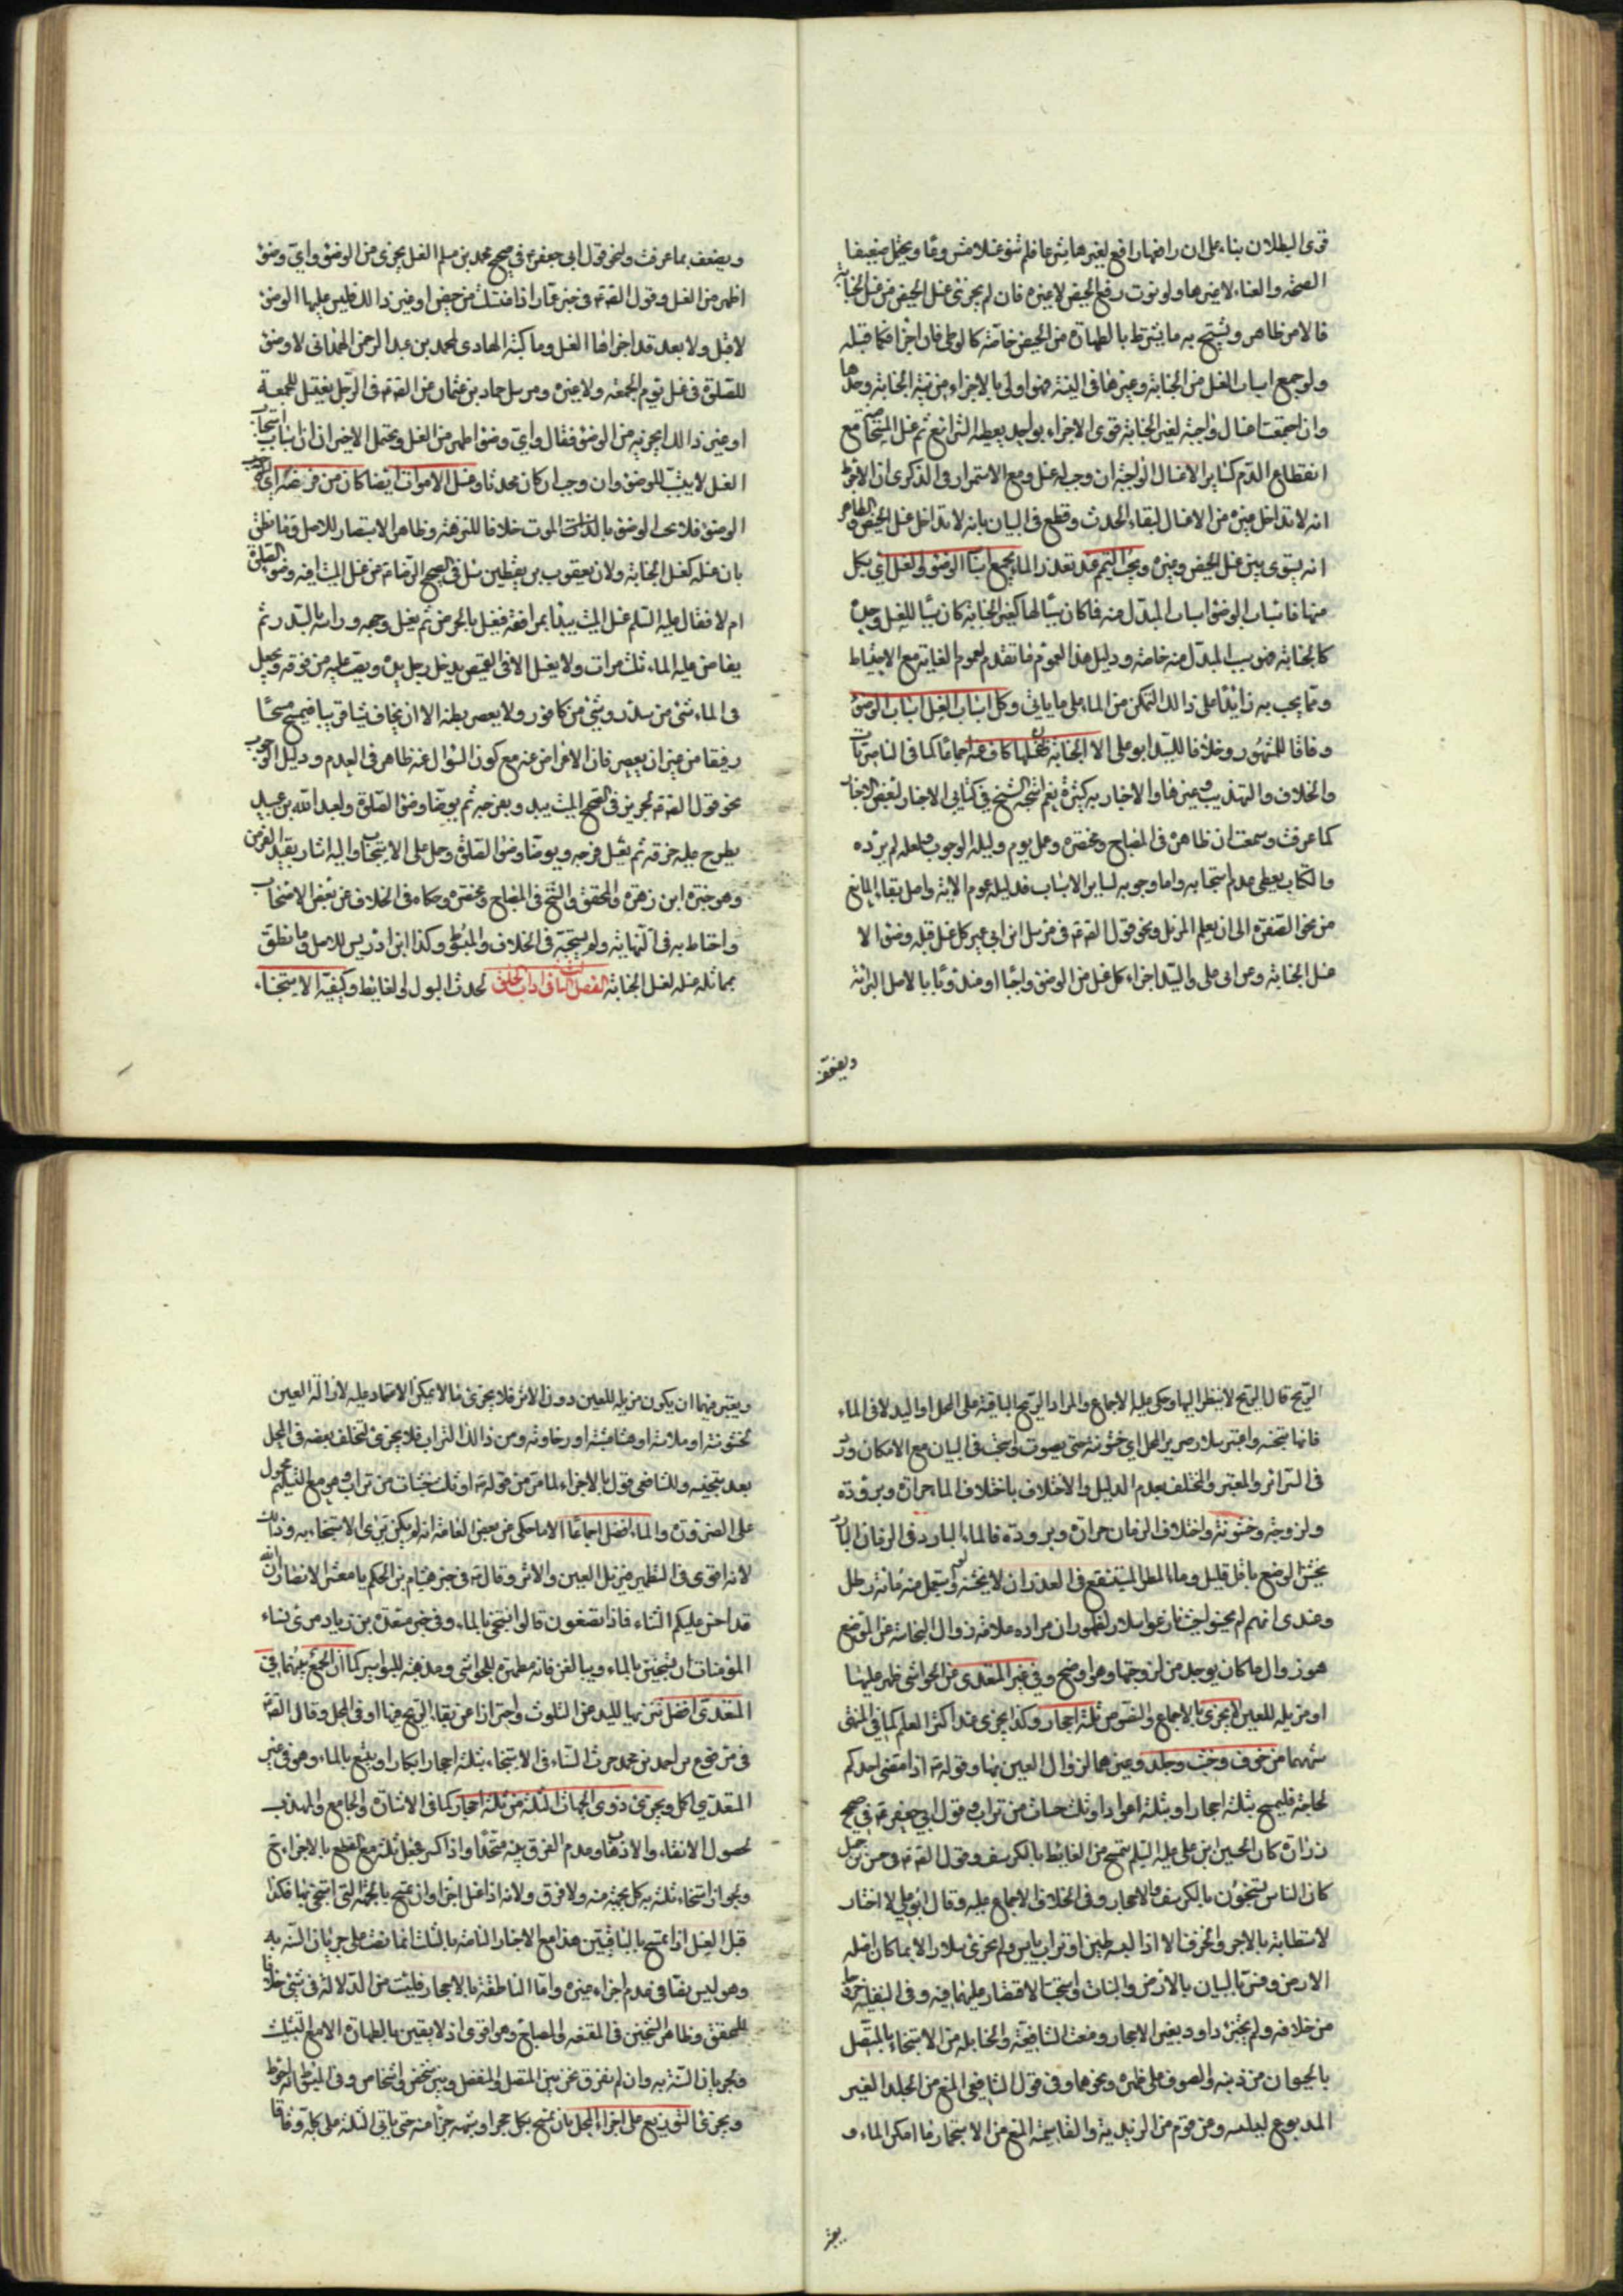 قوى البطلان بناء على ان رافعها رافع لغيرها شرعا فلم تنو غسلا مشروعا ويحتمل ضعيفا
الصحة والغناء لا غيرها ولو نوت رفع الحيض لا غيره فان لم يجزئ غسل الحيض من غسل الجنابة
فالامر ظاهر ويستبيح به ما يشترط بالطهارة من الحيض خاصة كالوطي فان اجزا فكما قبله
ولو جمع اسباب الغسل من الجنابة وغيرها في النية فهو اولى بالاجزاء من نية الجنابة وحدها
وان اجتمعت اغسال واجبة لغير الجنابة قوى الاجزاء بواحد يعطيه الشرائع ثم غسل المستحاضة مع
انقطاع الدم كساير الاغسال الواجبة ان وجب له غسل ومع الاستمرار في الذكرى ان الاقرب
انه لا تداخل بينه من الاغسال لبقاء الحدث وقطع في البيان بانه لا تداخل غسل الحيض والظاهر
انه يستوى بين غسل الحيض وغيره ويجب التيمم عند تعذر الماء بجميع اسباب الوضوء والغسل اي بكل
منها فاسباب الوضوء اسباب المبدل منه فما كان سببا لها كغير الجنابة كان سببا للغسل وحده
كالجنابة فهو سبب المبدل منه خاصة ودليل هذا العموم ما تقدم لعموم الغاية مع الاحتياط
ومما يجب به زايدا على ذلك التمكن من الماء على ما ياتي وكل اسباب الغسل اسباب الوضوء
وفاقا للمشهور وخلافا للسيد ابو على الا الجنابة فان غسلها كاف عنه اجماعا كما في الناصريات
والخلاف والتهذيب وغيرها والاخبار به كثيرة نعم استحبه الشيخ في كتابي الاخبار لبعض الاخبار
كما عرفت وسمعت ان ظاهره في المصباح ومختصره وعمل يوم وليلة الوجوب ولعله لم يرده
والكتاب يعطى عدم استحبابه واما وجوبه لساير الاسباب فدليله عموم الاية واصل بقاء المانع
من نحو الصفرة الى ان يعلم المزيل ونحو قول الصادق ع في مرسل ابن ابي عمير كل غسل قبله وضوء الا
غسل الجنابة وعن ابى على والسيد اجزاء كل غسل من الوضوء واجبا او مندوبا بالاصل البرائة
ويضعف
ويضعف بما عرفت ولنحو قول ابى جعفر ع في صحيح محمد بن مسلم الغسل يجزى من الوضوء واى وضوء
اطهر من الغسل وقول الصادق ع في خبر عمار اذا اغتسلت من حيض او غير ذالك فليس عليها الوضوء
لا قبل ولا بعد قد اجزاها الغسل وما كتبه الهادى لمحمد بن عبد الرحمن الهمداني لا وضوء
للصلوة في غسل يوم الجمعة ولا غيره ومرسل حماد بن عثمان عن الصادق ع في الرجل يغتسل للجمعة
او غير ذالك ايجزيه من الوضوء فقال واي وضوء اطهر من الغسل ويحتمل الاخيران ان استحباب
الغسل لا يثبت الوضوء وان وجب ان كان محدثا وغسل الاموات ايضا كان من فرضه اي
الوضوء فلا يجب الوضوء بالذات الموت خلافا للنزهة وظاهر الاستبصار للاصل وما نطق
بان غسله كغسل الجنابة ولان يعقوب بن يقطين سئل في الصحيح الرضا ع عن غسل الميت افيه وضوء الصلوة
ام لا فقال عليه السلم غسل الميت يبدأ بمرافقه فيغسل بالحرض ثم يغسل وجهه وراسه بالسدر ثم
يفاض عليه الماء ثلث مرات ولا يغسل الا في القميص يدخل رجل يده ويصب عليه من فوقه ويجعل
في الماء شئ من سدر وشئ من كافور ولا يعصر بطنه الا ان يخاف شيئا قريبا فيمسح مسحا
رفيقا من غير ان يعصر فان الاعراض عنه مع كون السؤال عنه ظاهر في العدم ودليل الوجوب
نحو قول الصادق ع لحريز في الصحيح الميت يبدء بفرجه ثم يوضأ وضوء الصلوة ولعبد الله بن عبيد
يطرح عليه خرقة ثم يغسل فرجه ويوضأ وضوء الصلوة وحمل على الاستحباب واليه اشار بقيد الفرض
وهو خيرة ابن زهرة والمحقق والشيخ في المصباح ومختصره وحكاه في الخلاف عن بعض الاصحاب
واحتاط به في النهاية ولم يستحبه في الخلاف والمبسوط وكذا ابن ادريس للاصل وما نطق
بمماثلة غسله لغسل الجنابة الفصل الثاني في اداب الخلوة لحدث البول والغايط وكيفية الاستنجاء
الريح قال الريح لا ينظر اليها وحكى عليه الاجماع والمراد الريح الباقية على المحل او اليد لا في الماء
فانها تنجسه واعتبر سلار صرير المحل اي خشونته حتى يصوت واستحب في البيان مع الامكان ورد
في السرائر والمعتبر والمختلف بعدم الدليل والاختلاف باختلاف الماء حرارة وبرودة
ولزوجة وخشونة واختلاف الزمان حرارة وبرودة فالماء البارد في الزمان البارد
يخشن الموضع باقل قليل وماء المطر المستنقع في الغدران لا يخشنه ولو استعمل منه مائة رطل
وعندى انهم لم يحسنوا اخبار عوا سلار لظهور ان مراده علامة زوال النجاسة عن الموضع
هو زوال ما كان يوجد من لزوجتها وهو اوضح وفي غير المتعدى من الحواشي ظهر عليها
او مزيله للعين يجزى بالاجماع والنصوص ثلثة احجار وكذا يجزى عند اكثر العلم كما في المنتهى
شبهها من خزف وخشب وجلد وغيرها لزوال العين بها وقوله ع اذا مضى احدكم
لحاجته فليمسح بثلثة احجار او بثلثة اعواد او ثلث حثيات من تراب وقول ابى جعفر ع في صحيح
زرارة كان الحسين ابن على عليه السلم يتمسح من الغايط بالكرسف وقول الصادق ع في حسن جميل
كان الناس يستنجون بالكرسف والاحجار وفي الخلاف الاجماع عليه وقال ابو على لا اختار
لاستطابة بالاجر والخزف الا اذا لبسه طين او تراب يابس ولم يجزئ سلار الا بما كان اصله
الارض وفسر بالبيان بالارض والنبات واستحب الاقتصار عليهما فيه وفي النفلية خروجا
من خلافه ولم يجتز داود بغير الاحجار ومنعت الشافعية والحنابلة من الاستنجاء بالمتصل
بالحيوان من ذنبه والصوف على ظهره ونحوهما وفي قول الشافعي المنع من الجلد الغير
المدبوغ ليبسه ومن قوم من الزيدية والقاسمية المنع من الاستجمار ما امكن الماء و
يعتبر
ويعتبر فيها ان يكون مزيله للعين دون الاثر فلا يجزئ ما لا يمكن الاعتماد عليه لازالة العين
لخشونته او ملاسته او هشاشته او رخاوته ومن ذالك التراب فلا يجزئ لتخلف بعضه في المحل
بعد تجفيفه وللشافعي قول بالاجزاء لما مر من قوله ع او ثلث حثيات من تراب وهو مع التسليم محمول
على الضرورة والماء افضل اجماعا الا ما حكى عن بعض العامة انه لم يكن يرى الاستنجاء به وذالك
لانه اقوى في التطهير مزيل العين والاثر وقال ع في خبر هشام بن الحكم يا معشر الانصار ان الله
قد احسن عليكم الثناء فماذا تصنعون قالوا نستنجى بالماء وفي خبر مسعدة بن زياد مري نساء
المؤمنات ان يستنجين بالماء ويبالغن فانه مطهرة للحواشى ومذهبة للبواسير كما ان الجمع بينهما في
المتعدى افضل تنزيها لليد من التلوث واحترازا عن بقاء الريح فيها او في المحل وقال الصادق ع
في مرفوع احمد بن محمد جرت السنة في الاستنجاء بثلثة احجار ابكار او يتبع بالماء وهو في غير
المتعدى اكل ويجزئ ذوى الجهات الثلث من ثلثة احجار كما في الاشارة والجامع والمهذب
لحصول الانقاء والاذهاب وعدم الفرق بينه متحدا واذا كسر فجعل ثلثة مع القطع بالاجزاء ح
ويجوز استنجاء ثلثة به كل بجهة منه ولا فرق ولانه اذا غسل اجزا وان تمسح بالجهة التى استنجى بها فكذا
قبل الغسل اذا تمسح بالباقيتين هذا مع الاخبار الناصة بالثلث انما نصت على جريان السنة به
وهو ليس نصا في عدم اجزاء غيره واما الناطقة بالاحجار فليست من الدلالة في شئ خلافا
للمحقق وظاهر الشيخين في المقنعة والمصباح وهو اقوى اذ لا يقين بالطهارة الا مع التثليث
وجريان السنة به وان لم نفرق نحن بين المتصل والمنفصل وبين شخص واشخاص وفي المبسوط انه احوط
ويجزئ التوزيع على اجزاء المحل بان يمسح بكل حجر او شبهه جزا منه حتى ياتى الثلثة على كله وفاقا